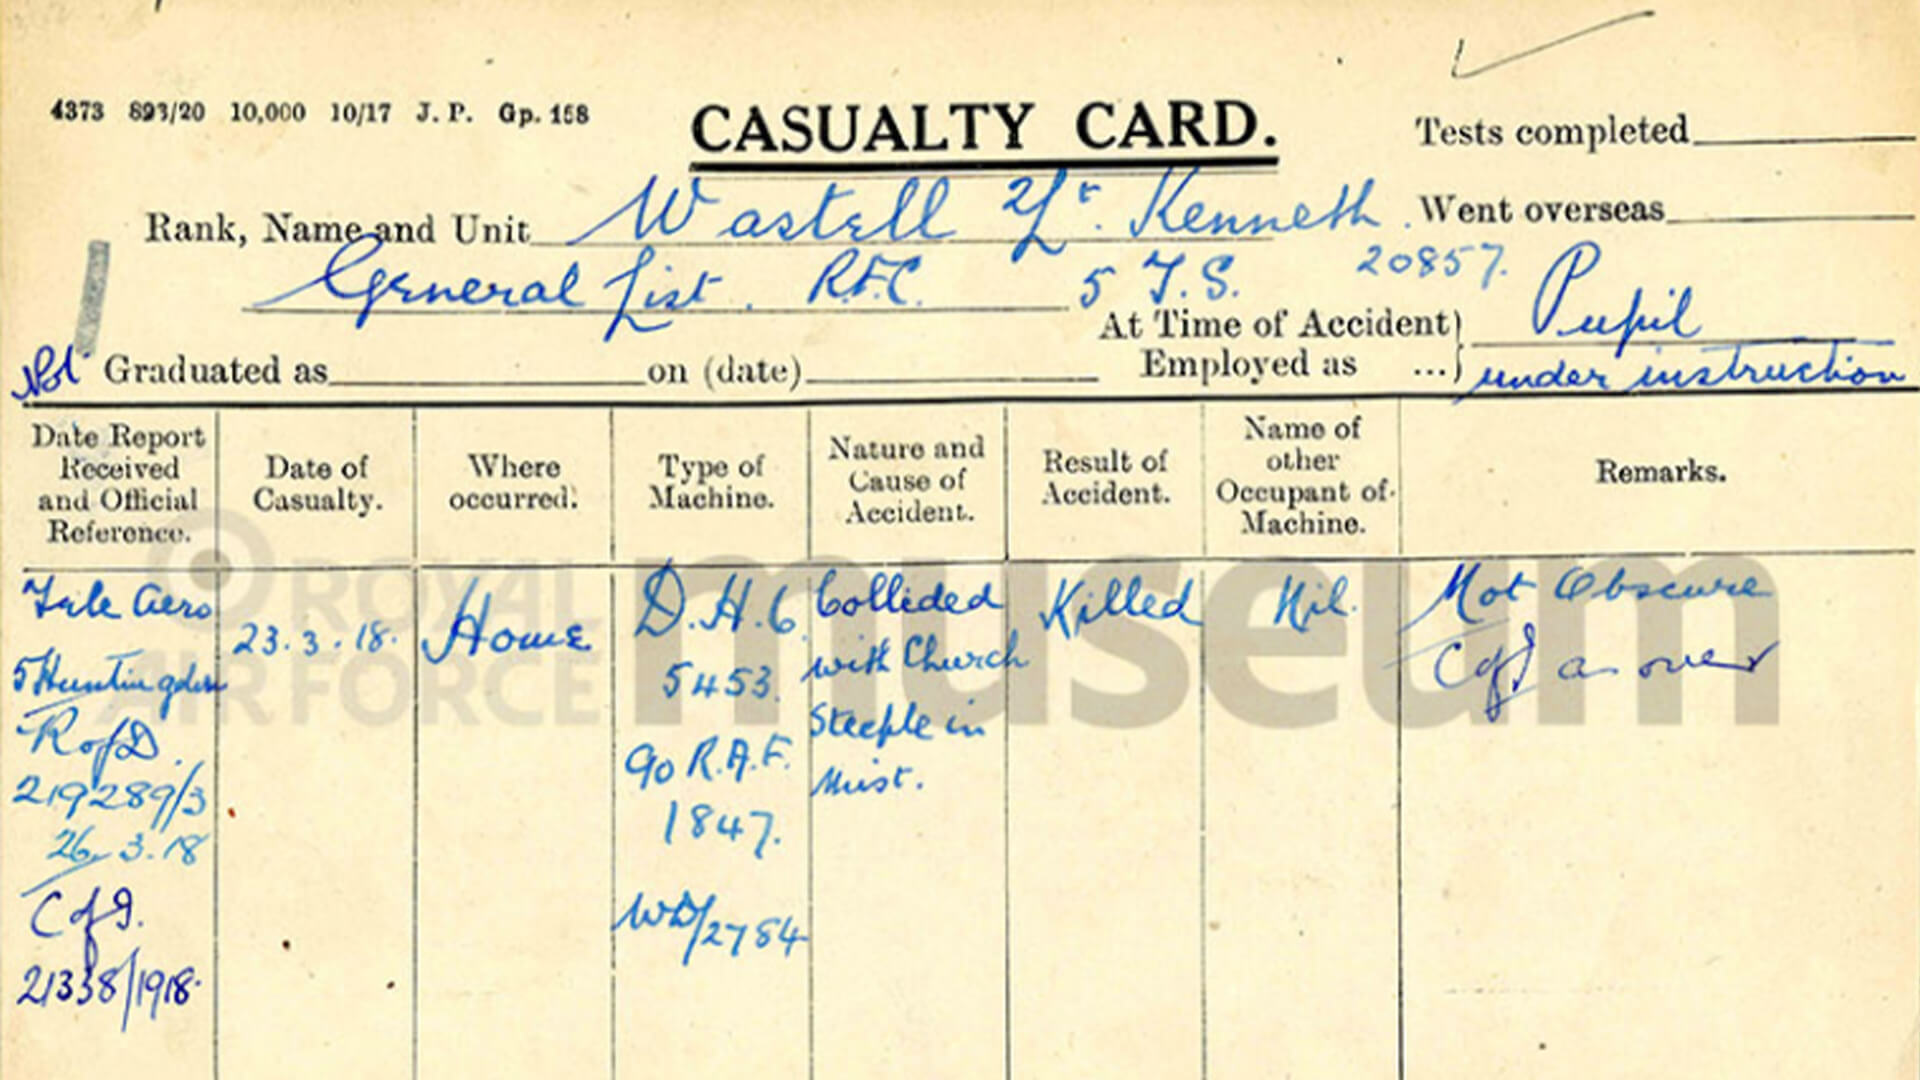 4373 893/20 10,000 10/17 J. P. Gp. 158
CASUALTY CARD.
Tests completed
Rank, Name and Unit Wastell 2/Lt. Kenneth.
Went overseas
General List. R.F.C. 5 T.S. 20857.
At Time of Accident Employed as ... Pupil under instruction
Not Graduated as on (date)
Date Report Received and Official Reference.
Date of Casualty.
Where occurred.
Type of Machine.
Nature and Cause of Accident.
Result of Accident.
Name of other Occupant of Machine.
Remarks.
Tele Aero
5 Huntingdon
R of D.
219289/3
26.3.18
C of I.
21338/1918.
23.3.18.
Home
D.H.6.
5453.
90 R.A.F.
1847.
WD/2784
Collided
with Church
Steeple in
Mist.
Killed
Nil.
Not Obscure
C of I as over
ROYAL
AIR FORCE
museum